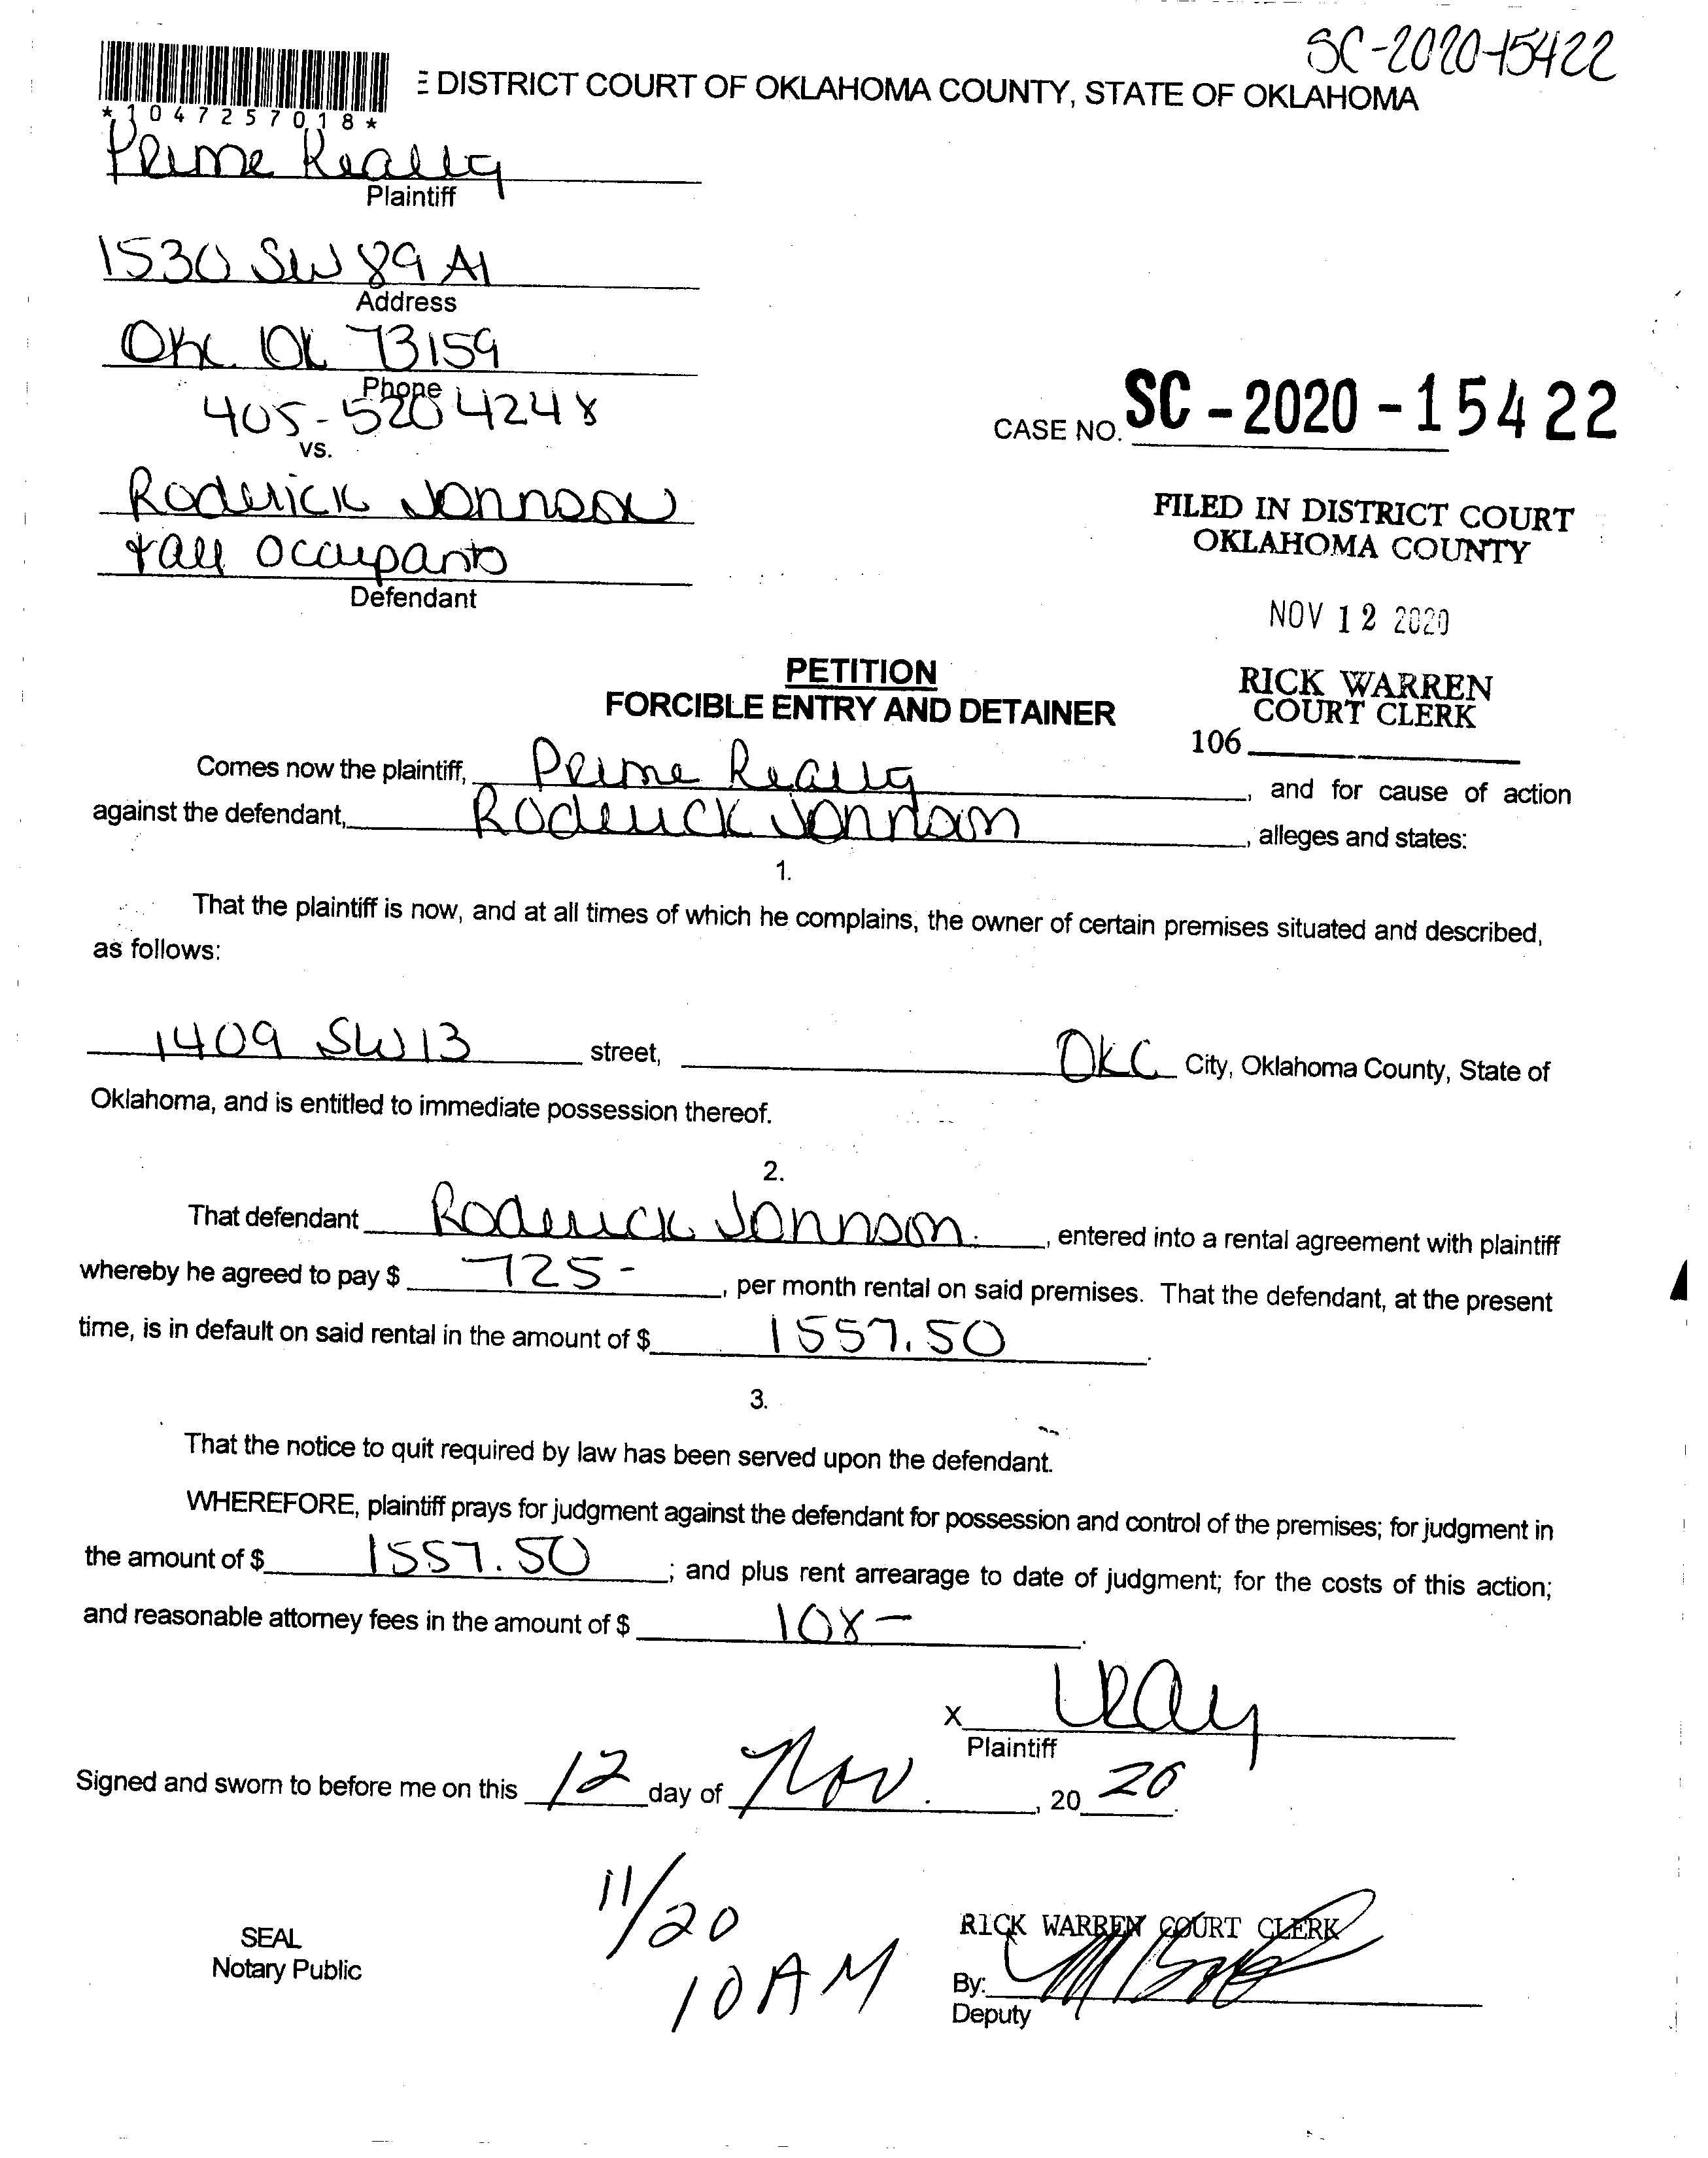 SC-2020-15422
E DISTRICT COURT OF OKLAHOMA COUNTY, STATE OF OKLAHOMA
*1047257018*
Prime Realty
Plaintiff
1530 SW 89 A1
Address
Okc Ok 73159
Phone
405-520 4248
vs.
CASE NO. SC-2020-15422
Roderick Johnson
+ all occupants
Defendant
FILED IN DISTRICT COURT
OKLAHOMA COUNTY
NOV 12 2020
RICK WARREN
COURT CLERK
106
PETITION
FORCIBLE ENTRY AND DETAINER
Comes now the plaintiff, Prime Realty, and for cause of action
against the defendant, Roderick Johnson, alleges and states:
1.
That the plaintiff is now, and at all times of which he complains, the owner of certain premises situated and described,
as follows:
1409 SW 13 street, OKC City, Oklahoma County, State of
Oklahoma, and is entitled to immediate possession thereof.
2.
That defendant Roderick Johnson, entered into a rental agreement with plaintiff
whereby he agreed to pay $ 725-, per month rental on said premises. That the defendant, at the present
time, is in default on said rental in the amount of $ 1557.50.
3.
That the notice to quit required by law has been served upon the defendant.
WHEREFORE, plaintiff prays for judgment against the defendant for possession and control of the premises; for judgment in
the amount of $ 1557.50; and plus rent arrearage to date of judgment; for the costs of this action;
and reasonable attorney fees in the amount of $ 108-.
X
Plaintiff
Signed and sworn to before me on this 12 day of Nov., 20 20.
11/20
10 AM
SEAL
Notary Public
RICK WARREN COURT CLERK
By:
Deputy